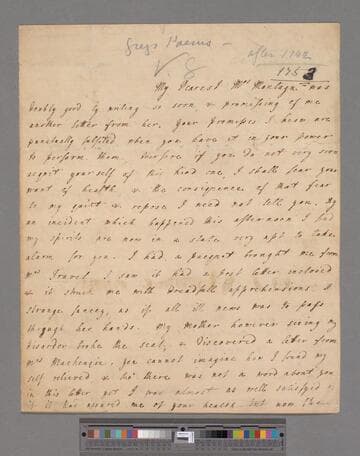 Grays Poems —
after 1742
1753
My Dearest Mrs Montagu was
doubly good by writing so soon & promising of me
another letter from her. Your promises I know are
punctually fulfilled when you have it in your power
to perform them, therefore if you do not very soon
acquit your self of this kind one, I shall fear your
want of health & the consequences of that fear
to my quiet & repose I need not tell you. By
an incident which happened this afternoon I find
my spirits are now in a state very apt to take
alarm for you. I had a pacquet brought me from
Mrs Travel I saw it had a post letter inclosed
& it struck me with Dreadfull apprehensions. A
strange fancy, as if all ill news was to pass
through her hands. My Mother however seeing my
disorder broke the seal, & discovered a letter from
Mrs Mackenzie. you cannot imagine how I found my
self relieved & tho' there was not a word about you
in this letter yet I was almost as well satisfied as
if it had assured me of your health. but now the